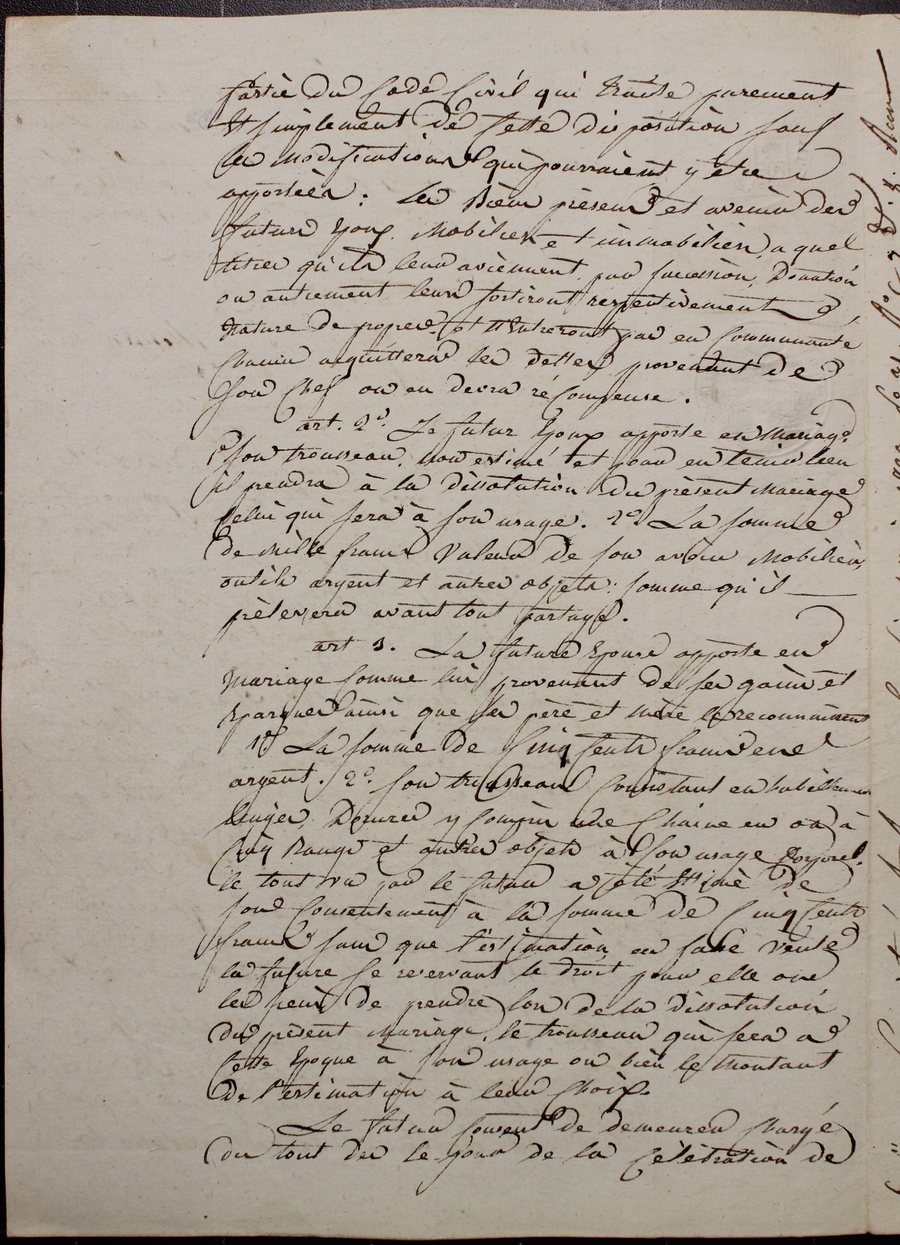 partie du Code Civil qui traite purement
Et simplement de Cette disposition sauf
les modifications qui pourraient y être
apportées : les Biens présens et avenir des
futurs Epoux Mobiliers et immobiliers, a quel
titre qu'ils leur aviennent par succession, Donation
ou autrement leurs sortiront respectivement
Nature de propres et n'Entreront pas en Communauté
Chacun acquittera les dettes provenant de
son Chef ou en devra récompense.
art. 2e. Le futur Epoux apporte en Mariage
1° son trousseau, non estimé et pour en tenir lieu
il prendra à la dissolution du présent Mariage
Celui qui sera à son usage. 2° La somme
de Mille francs Valeur de son avoir Mobilier,
outils argent et autres objets : somme qu'il
prélevera avant tout partage.
art 3. La future Epouse apporte en
Mariage Comme lui provenant de ses gains et
Epargnes ainsi que ses père et mère le reconnaissent
1° La somme de Cinq Cents francs en
argent. 2°. son trousseau Consistant en habillemens
linges, Dorures y Compris une Chaine en or à
Cinq Rangs et autres objets à son usage
le tout vu par le futur a été Estimé de
son Consentement à la somme de Cinq Cents
francs sans que l'estimation en fasse vente
la future se reservant le droit pour elle ou
les siens de prendre lors de la dissolution
du présent Mariage, le trousseau qui sera a
Cette Epoque à son usage ou bien le Montant
de l'estimation à leur Choix.
Le futur Consent de demeurer Chargé
du tout dès le jour de la Célébration de